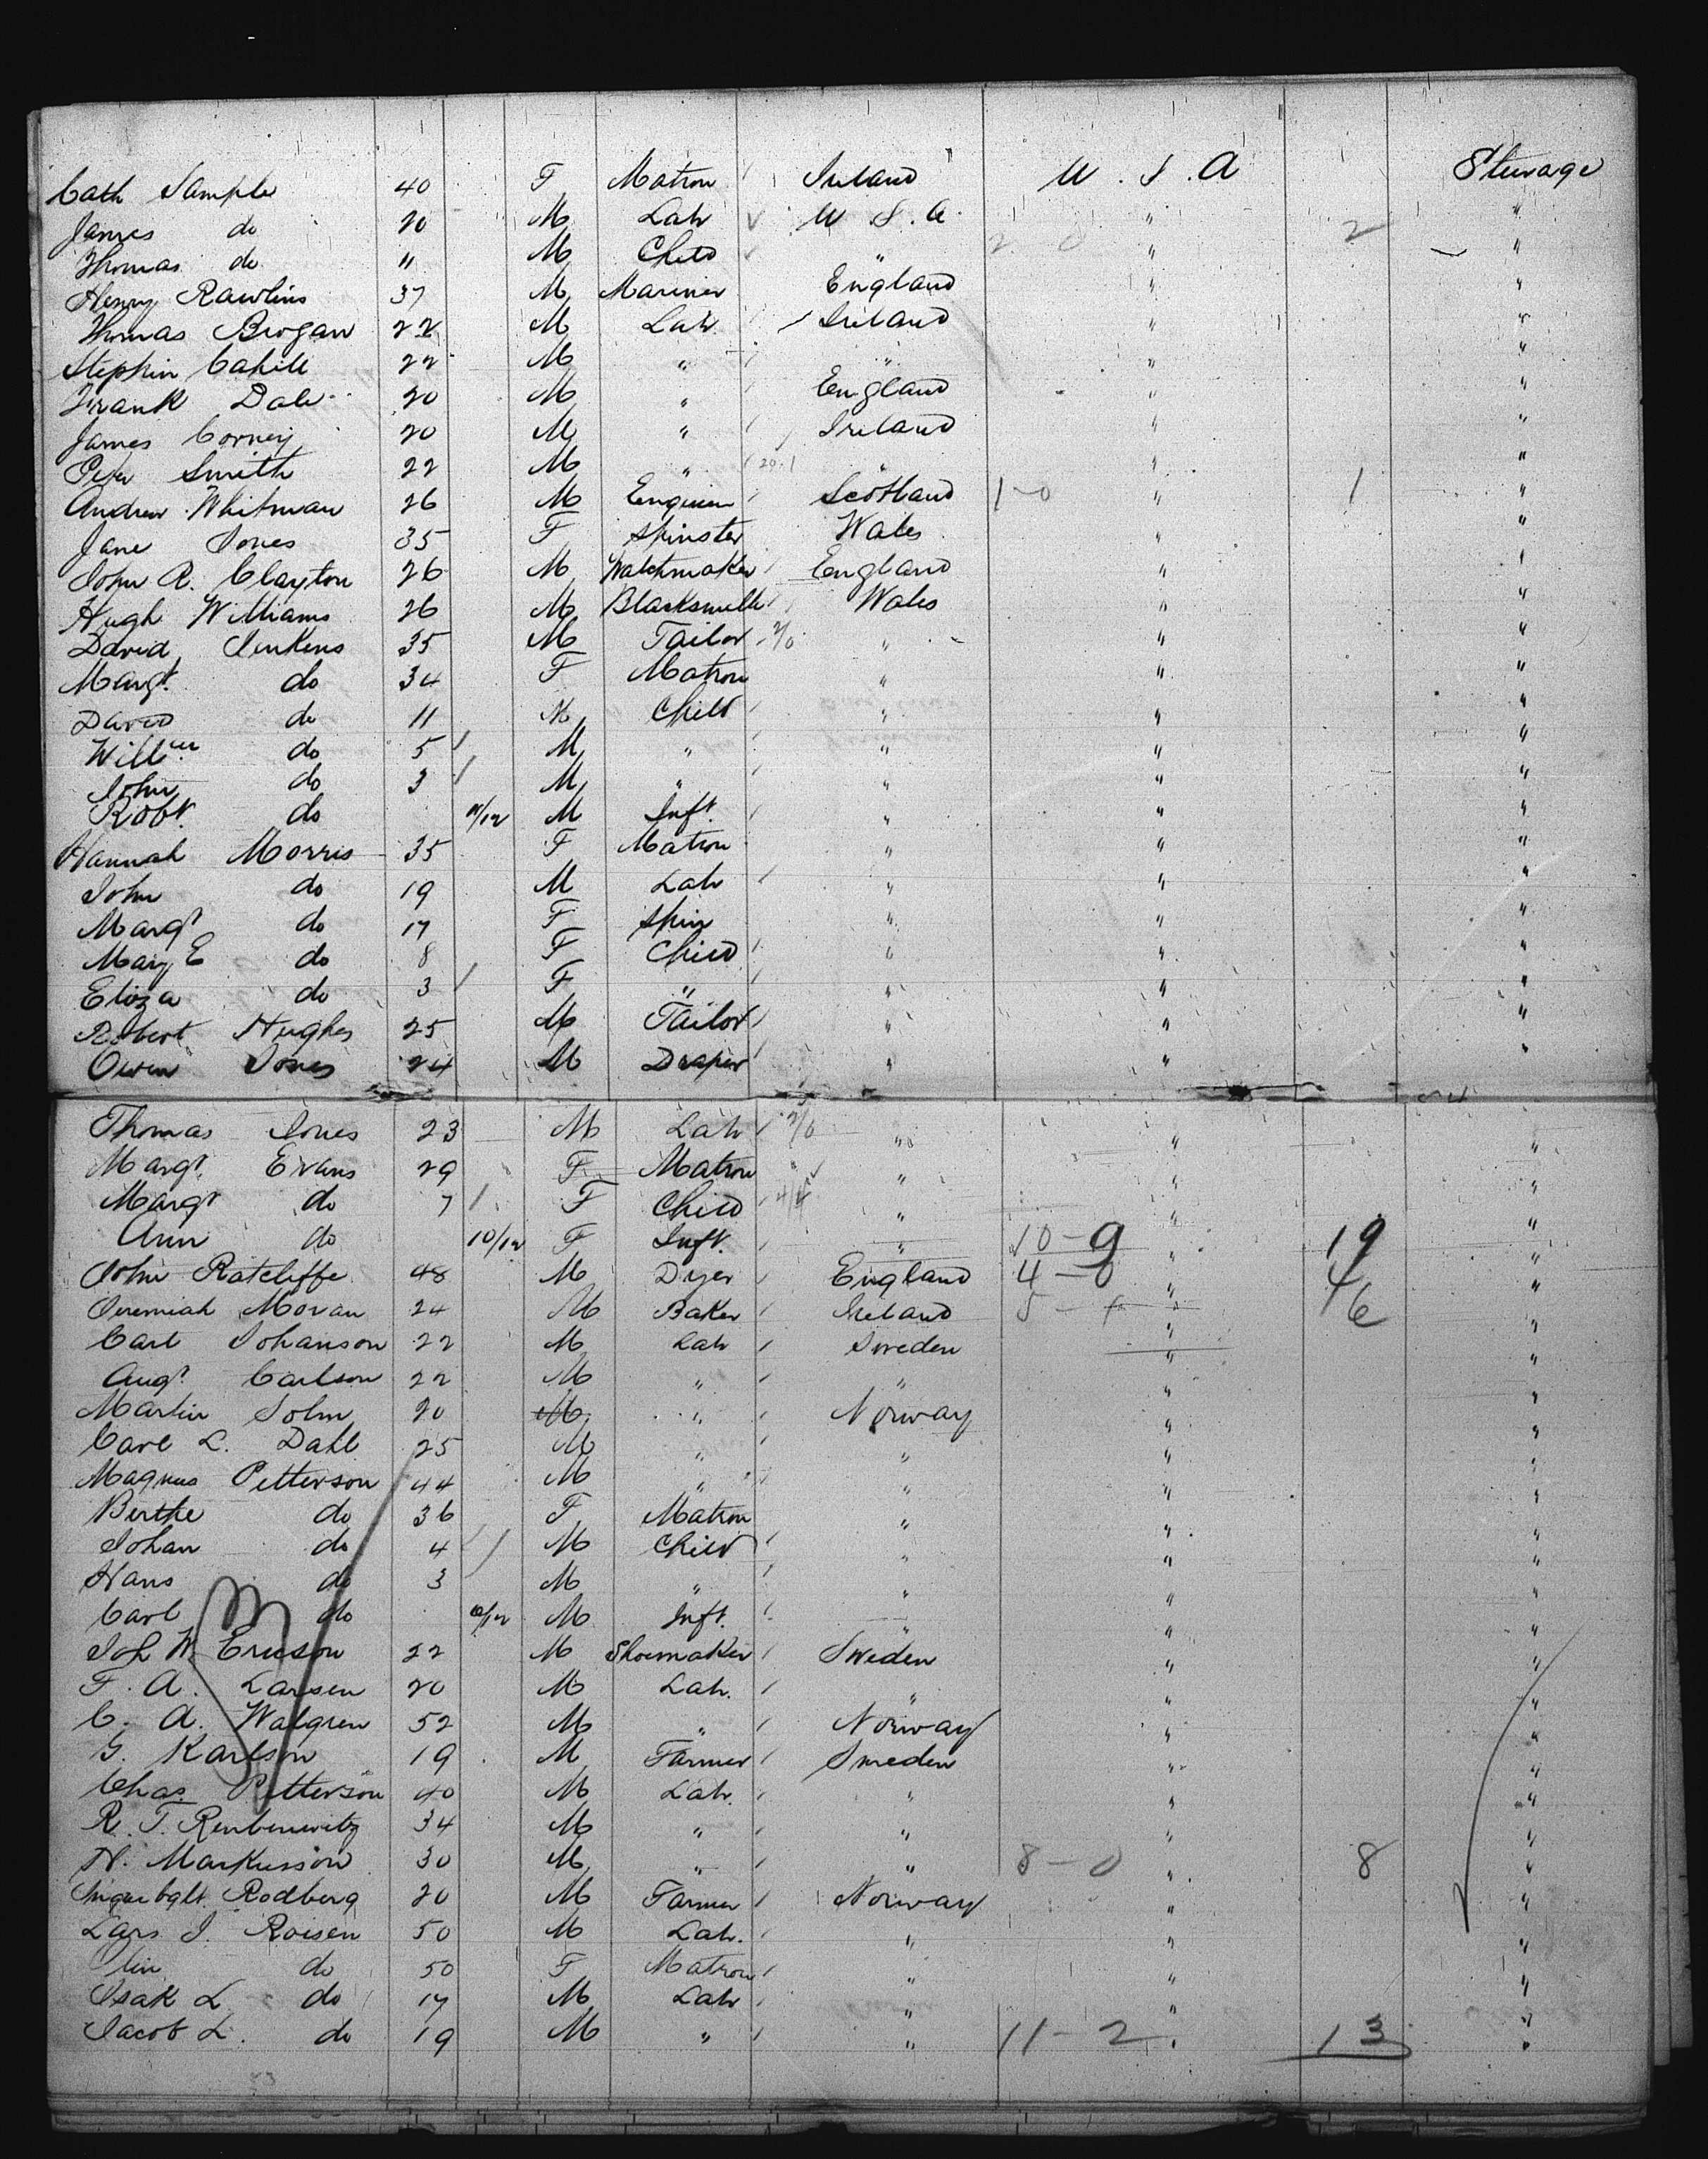 Cath Sample 40 F Matron Ireland U. S. A Steerage
James do 20 M Lab U. S. A. " "
Thomas do 11 M Child " " 2 "
Henry Rawlins 37 M Mariner England " "
Thomas Brogan 22 M Lab. Ireland " "
Stephen Cahill 22 M " " " "
Frank Dale 20 M " England " "
James Corney 20 M " Ireland " "
Peter Smith 22 M " " " "
Andrew Whitman 26 M Engineer Scotland 1-0 " 1 "
Jane Jones 35 F Spinster Wales " "
John R. Clayton 26 M Watchmaker England " "
Hugh Williams 26 M Blacksmith Wales " "
David Jenkins 35 M Tailor " " "
Margt. do 34 F Matron " " "
David do 11 M Child " " "
Willm do 5 M " " " "
John do 3 M " " " "
Robt. do 11/12 M Inft. " " "
Hannah Morris 35 F Matron " " "
John do 19 M Lab " " "
Margt do 17 F Spin " " "
Mary E do 8 F Child " " "
Eliza do 3 F " " " "
Robert Hughes 25 M Tailor " " "
Owen Jones 24 M Draper " " "
Thomas Jones 23 M Lab " " "
Margt. Evans 29 F Matron " " "
Margt do 7 F Child " " "
Ann do 10/12 F Inft. " 10-9 " 19 "
John Ratcliffe 48 M Dyer England 4-0 " 4 "
Jeremiah Moran 24 M Baker Ireland 5-1 " 6 "
Carl Johanson 22 M Lab Sweden " "
Augt. Carlson 22 M " " " "
Martin John 20 M " Norway " "
Carl L. Dahl 25 M " " " "
Magnus Petterson 44 M " " " "
Berthe do 36 F Matron " " "
Johan do 4 M Child " " "
Hans do 3 M " " " "
Carl do M Inft. " " "
Joh W. Ericson 22 M Shoemaker Sweden " "
F. A. Larsen 20 M Lab. " " "
C. A. Walgren 52 M " Norway " "
G. Karlson 19 M Farmer Sweden " "
Chas. Petterson 40 M Lab. " " "
R. T. 34 M " " " "
N. Markusson 30 M " " 8-0 " 8 "
Rodberg 20 M Farmer Norway " "
Lars J. Roisen 50 M Lab. " " "
do 50 F Matron " " "
Isak L do 17 M Lab " " "
Jacob L. do 19 M " " 11-2 " 13 "